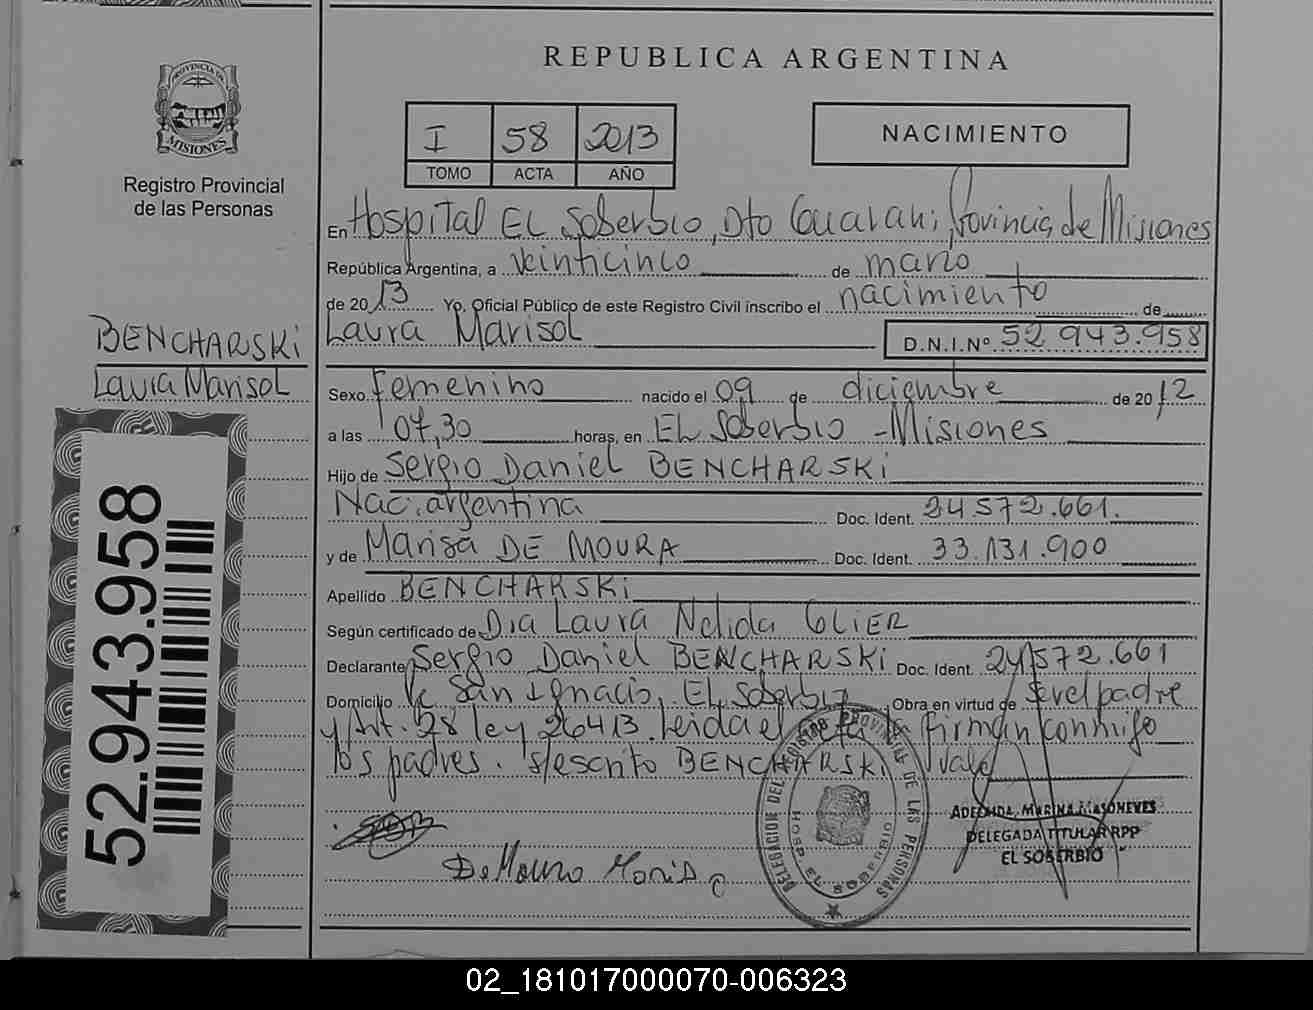 REPUBLICA ARGENTINA
PROVINCIA DE
MISIONES
Registro Provincial
de las Personas
I 58 2013
TOMO ACTA AÑO
NACIMIENTO
En Hospital EL Soberbio, Dto Guarani, Provincia de Misiones
República Argentina, a veinticinco de marzo
de 2013 Yo, Oficial Público de este Registro Civil inscribo el nacimiento de
Laura Marisol D.N.I.Nº 52.943.958
BENCHARSKI
Laura Marisol
Sexo Femenino nacido el 09 de diciembre de 2012
a las 07,30 horas, en EL Soberbio - Misiones
Hijo de Sergio Daniel BENCHARSKI
Nac. argentina Doc. Ident. 24.572.661.
y de Marisa DE MOURA Doc. Ident. 33.131.900
Apellido BENCHARSKI
Según certificado de Dra Laura Nelida GLIER
Declarante Sergio Daniel BENCHARSKI Doc. Ident. 24.572.661
Domicilio San Ignacio, EL Soberbio Obra en virtud de ser el padre
y Art. 28 ley 26413. Leida el acta la firman conmigo
los padres. s/escrito BENCHARSKI vale
52.943.958
DELEGACION DEL REGISTRO PROVINCIAL DE LAS PERSONAS
HOSP. EL SOBERBIO
De Moura Marisa
DELEGADA TITULAR RPP
EL SOBERBIO
02_181017000070-006323